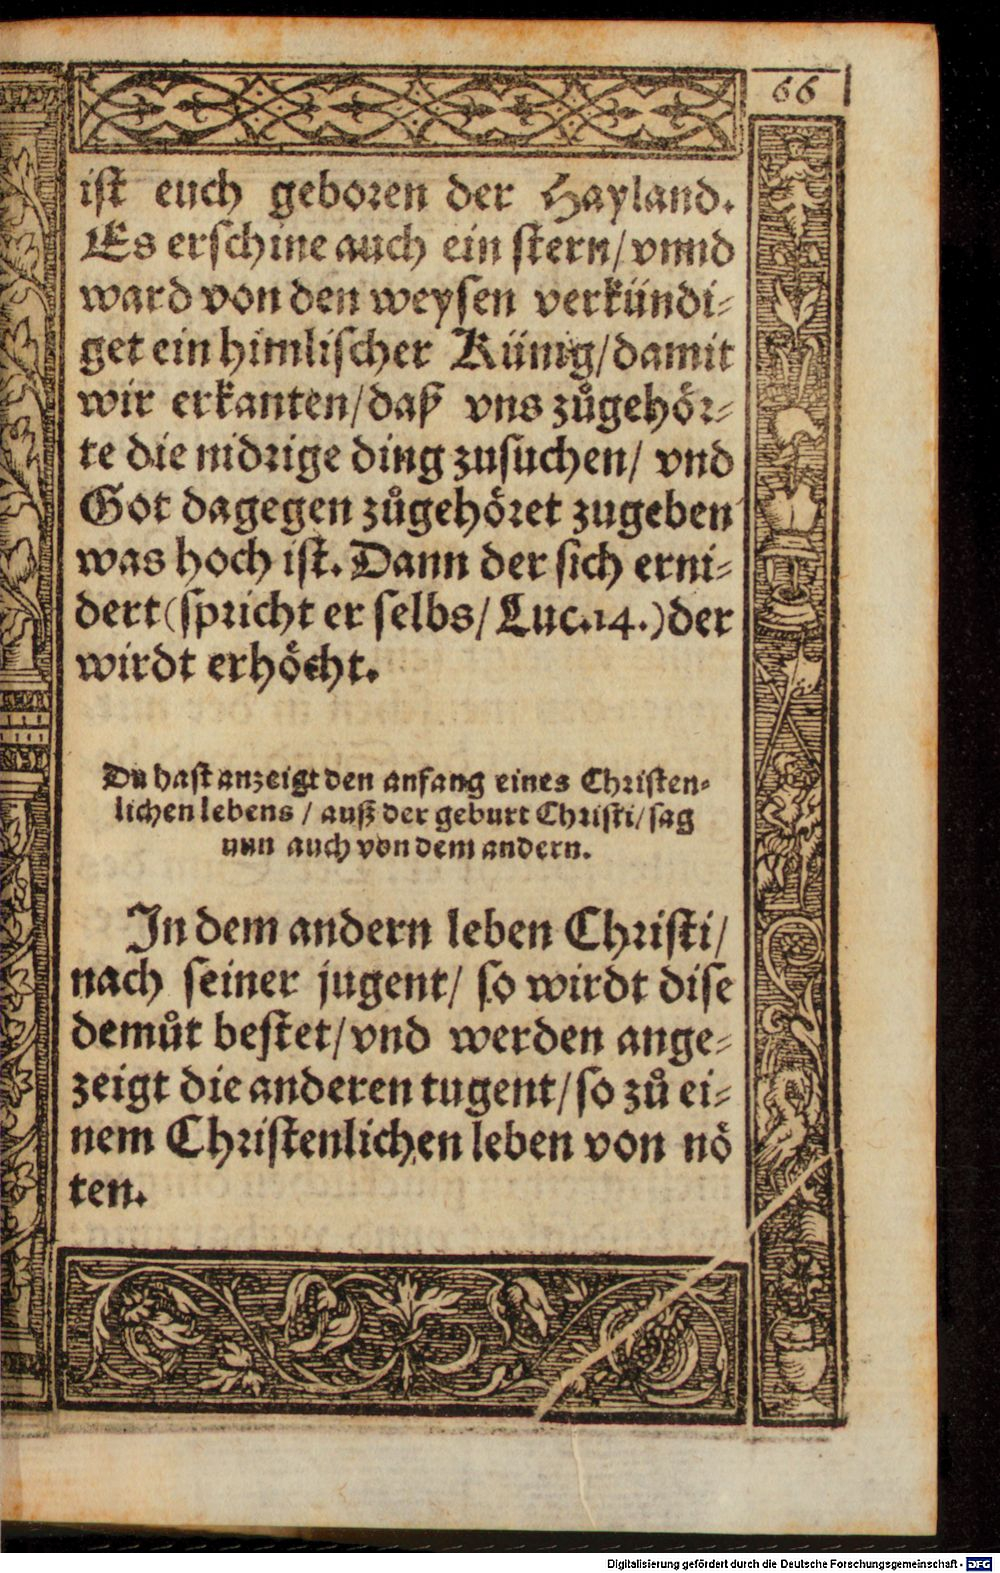 66
ist euch geboren der Hayland.
Es erschine auch ein stern/ vnnd
ward von den weysen verkündi-
get ein himlischer Künig/ damit
wir erkanten/ daß vns zůgehör-
te die nidrige ding zusuchen/ vnd
Got dagegen zůgehöret zugeben
was hoch ist. Dann der sich erni-
dert (spricht er selbs/ Luc.14.) der
wirdt erhöcht.
Du hast anzeigt den anfang eines Christen-
lichen lebens / auß der geburt Christi/ sag
nun auch von dem andern.
In dem andern leben Christi/
nach seiner jugent/ so wirdt dise
demůt bestet/ vnd werden ange-
zeigt die anderen tugent/ so zů ei-
nem Christenlichen leben von nö
ten.
Digitalisierung gefördert durch die Deutsche Forschungsgemeinschaft - DFG